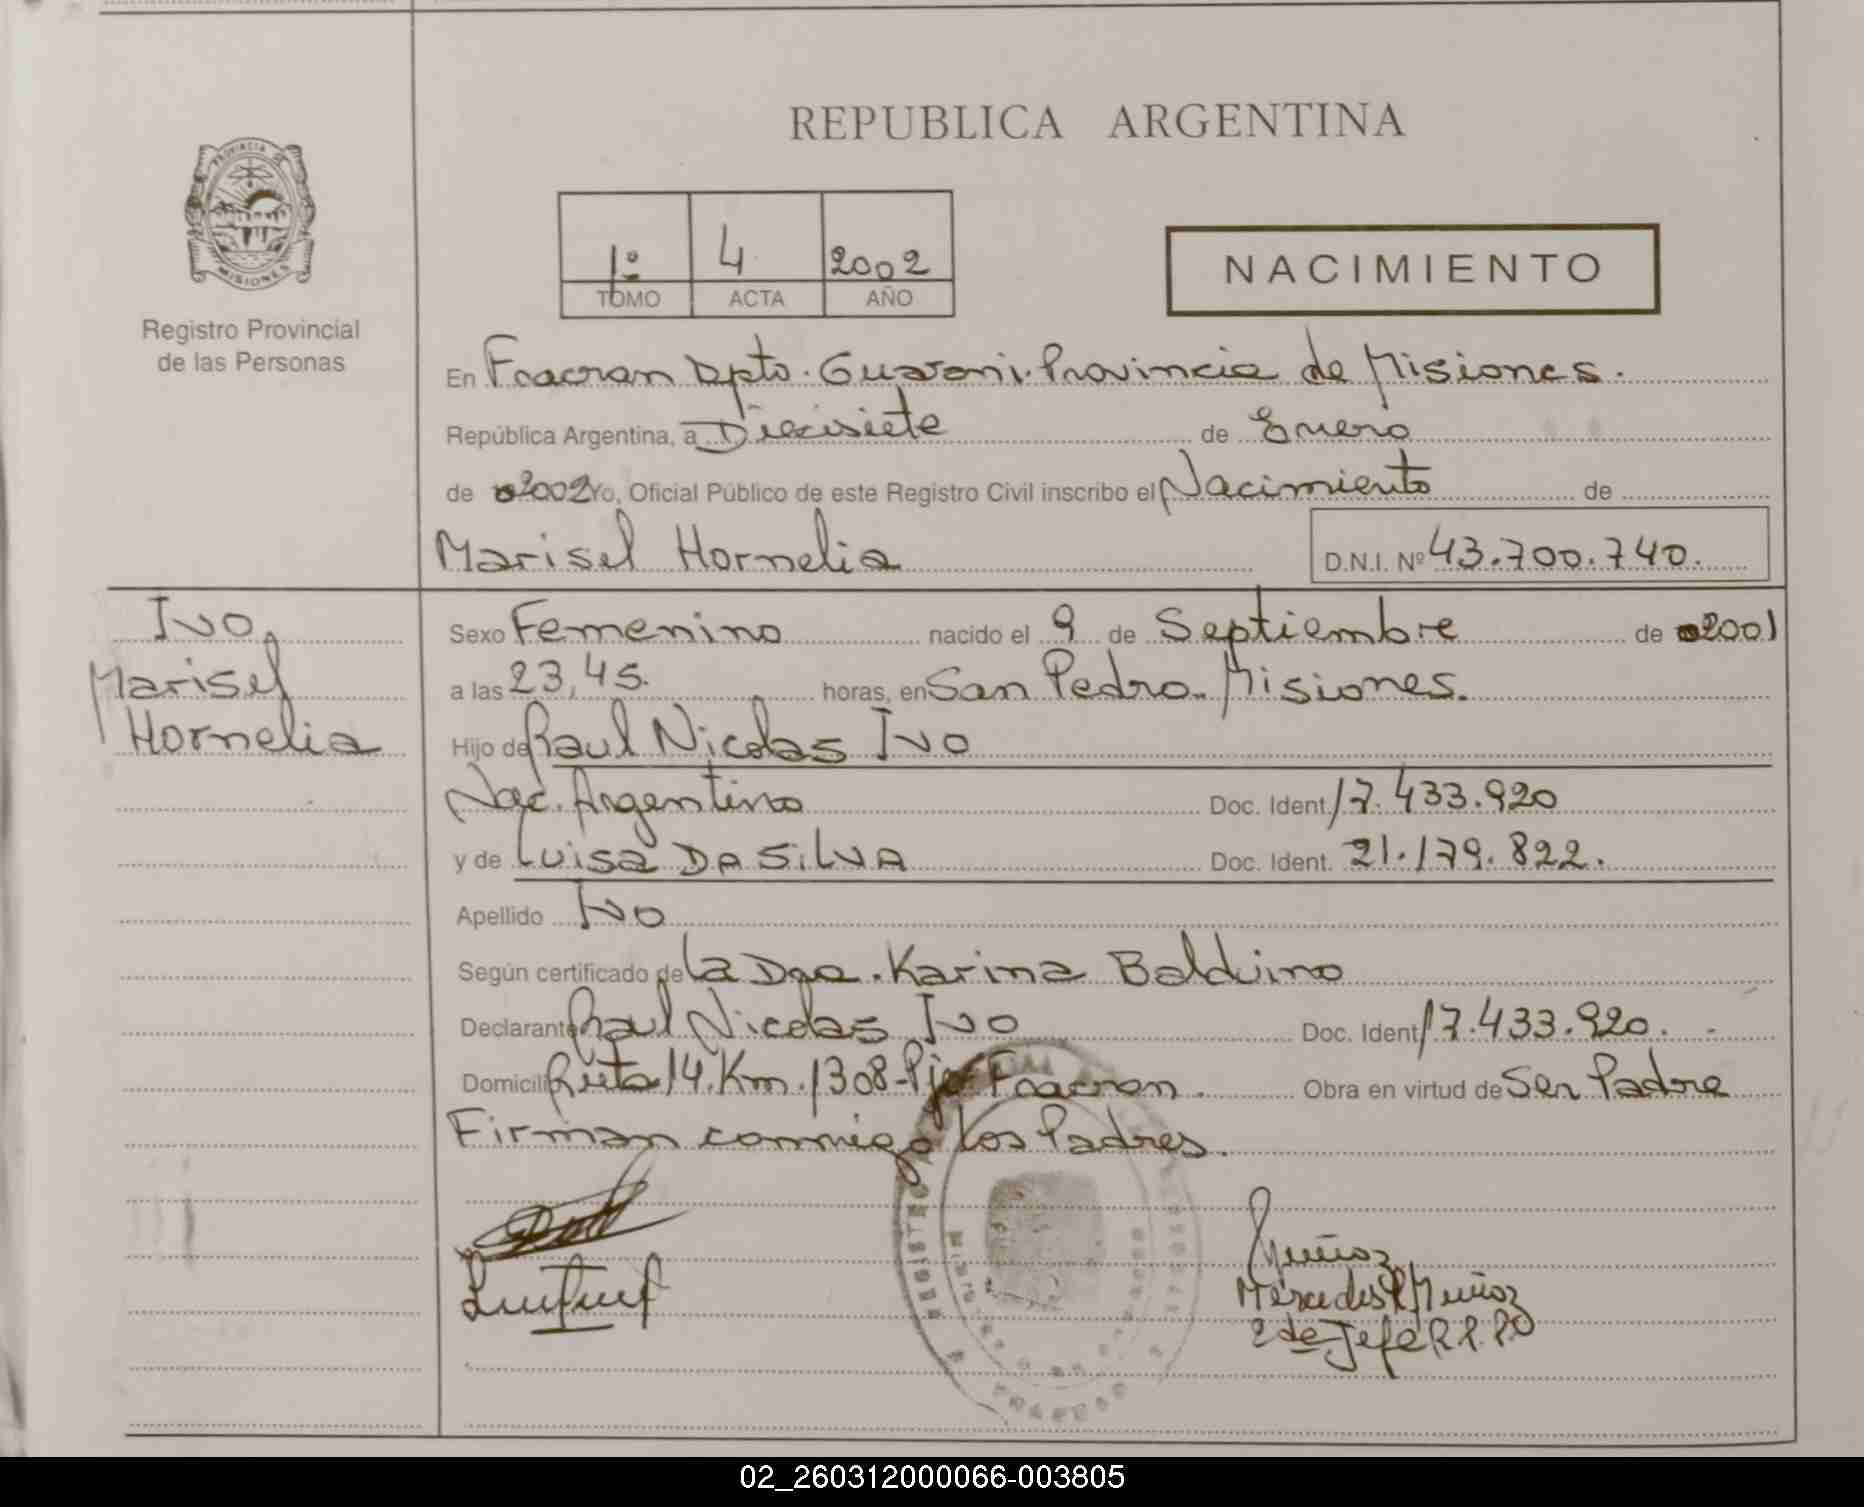 REPUBLICA ARGENTINA
PROVINCIA DE
MISIONES
Registro Provincial
de las Personas
1º 4 2002
TOMO ACTA AÑO
NACIMIENTO
En Fracran Dpto. Guarani. Provincia de Misiones.
República Argentina, a Diecisiete de Enero
de 2002 Yo, Oficial Público de este Registro Civil inscribo el Nacimiento de
Marisel Hornelia D.N.I. Nº 43.700.740.
Ivo
Marisel
Hornelia
Sexo Femenino nacido el 9 de Septiembre de 2001
a las 23,45. horas, en San Pedro. Misiones.
Hijo de Raul Nicolas Ivo
Nac. Argentino Doc. Ident. 17.433.920
y de Luisa DA SILVA Doc. Ident. 21.179.822.
Apellido Ivo
Según certificado de la Dra. Karina Balduino
Declarante Raul Nicolas Ivo Doc. Ident. 17.433.920.
Domicilio Ruta 14. Km. 1308-Pje Fracran. Obra en virtud de Ser Padre
Firman conmigo los Padres.
Muñoz
Mercedes R Muñoz
2 de Jefe R.P.P.
02_260312000066-003805